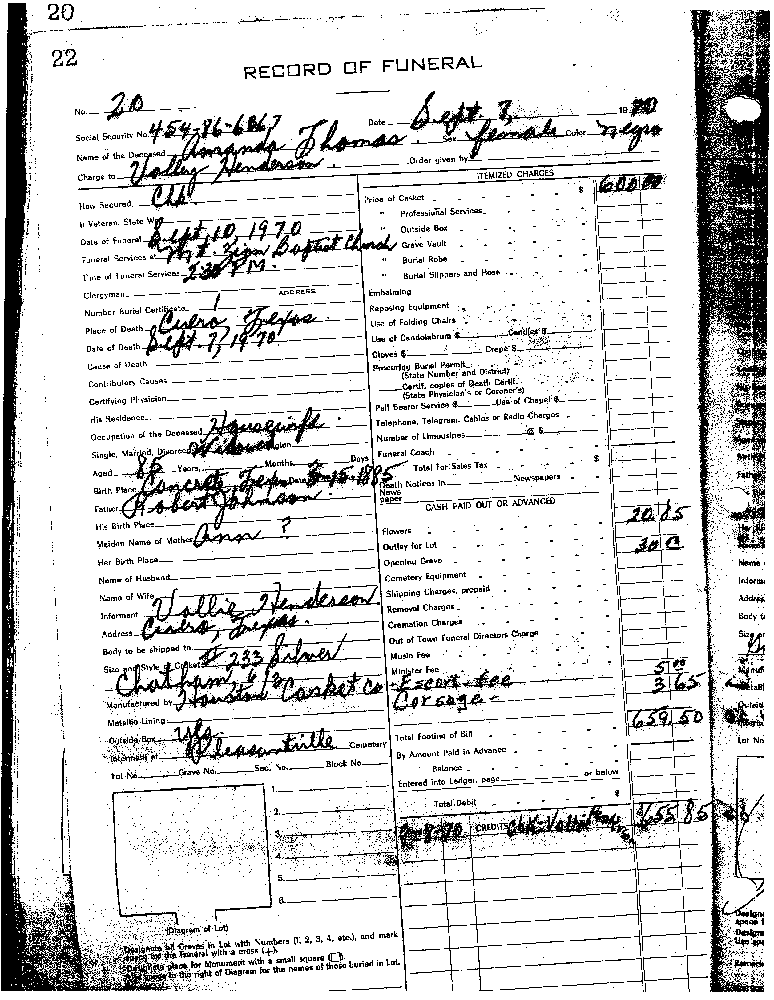 20
22
RECORD OF FUNERAL
No. 20
Social Security No. 454-86-6867 Date Sept. 7, 1970
Name of the Deceased Amanda Thomas Sex female Color Negro
Charge to Valley Henderson Order given by
How Secured Chk
If Veteran, State War
Date of Funeral Sept. 10, 1970
Funeral Services at Mt. Zion Baptist Church
Time of Funeral Services 2:30 P.M.
Clergyman ADDRESS
Number Burial Certificate 1
Place of Death Cuero, Texas
Date of Death Sept. 7, 1970
Cause of Death
Contributory Causes
Certifying Physician
His Residence
Occupation of the Deceased Housewife
Single, Married, Divorced Widowed
Aged 85 Years Months Days
Birth Place Concrete, Texas 15, 1885
Father Robert Johnson
His Birth Place
Maiden Name of Mother Ann ?
Her Birth Place
Name of Husband
Name of Wife
Informant Vallie Henderson
Address Cuero, Texas.
Body to be shipped to
Size and Style of Casket # 233 Silver
Chatham 6/3
Manufactured by Houston Casket Co
Metallic Lining
Outside Box yes
Interment at Pleasantville Cemetery
Lot No. Grave No. Sec. No. Block No.
1.
2.
3.
4.
5.
6.
(Diagram of Lot)
Designate all Graves in Lot with Numbers (1, 2, 3, 4, etc.), and mark
Grave for the Funeral with a cross (+).
Designate place for Monument with a small square
Use space to the right of Diagram for the names of those buried in Lot.
ITEMIZED CHARGES
Price of Casket $ 600 00
" Professional Services
" Outside Box
" Grave Vault
" Burial Robe
" Burial Slippers and Hose
Embalming
Reposing Equipment
Use of Folding Chairs
Use of Candelabrum $ Candles $
Gloves $ Crepe $
Procuring Burial Permit
(State Number and District)
Certif. copies of Death Certif.
(State Physician's or Coroner's)
Pall Bearer Service $ Use of Chapel $
Telephone, Telegram, Cables or Radio Charges
Number of Limousines @ $
Funeral Coach
Total for Sales Tax $
Death Notices in Newspapers
News
paper
CASH PAID OUT OR ADVANCED
Flowers 20 85
Outlay for Lot
Opening Grave 30
Cemetery Equipment
Shipping Charges, prepaid
Removal Charges
Cremation Charges
Out of Town Funeral Directors Charge
Music Fee
Minister Fee
Escort fee 5 00
Corsage - 3 65
Total Footing of Bill 659 50
By Amount Paid in Advance
Balance
Entered into Ledger, page or below
Total Debit $
CREDITS 655 85